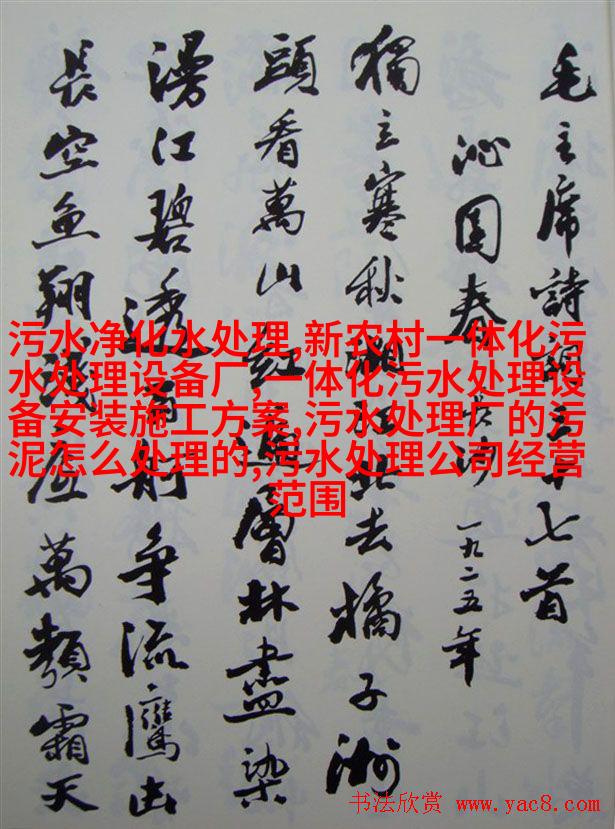 毛主席詩詞三十七首
沁园春 长沙 一九二五年
獨立寒秋湘江北去橘子洲
頭看萬山紅遍層林盡染
漫江碧透百舸争流鷹击
長空鱼翔浅底萬類霜天
污水净化水处理,新农村一体化污
水处理设备厂,一体化污水处理设
备安装施工方案,污水处理厂的污
泥怎么处理的,污水处理公司经营
范围
书法欣赏 www.yac8.com